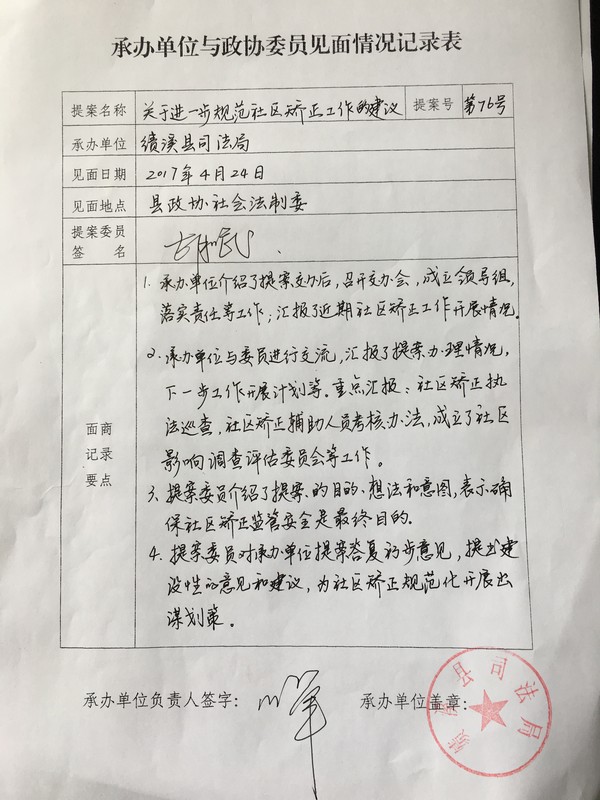 承办单位与政协委员见面情况记录表
提案名称 关于进一步规范社区矫正工作的建议 提案号 第76号
承办单位 绩溪县司法局
见面日期 2017年4月24日
见面地点 县政协社会法制委
提案委员
签名
面商
记录
要点
1. 承办单位介绍了提案交办后，召开交办会，成立领导组，
落实责任等工作；汇报了近期社区矫正工作开展情况。
2. 承办单位与委员进行交流，汇报了提案办理情况，
下一步工作开展计划等。重点汇报：社区矫正执
法巡查、社区矫正辅助人员考核办法，成立了社区
影响调查评估委员会等工作。
3、提案委员介绍了提案的目的、想法和意图，表示确
保社区矫正监管安全是最终目的.
4. 提案委员对承办单位提案答复初步意见，提出建
设性的意见和建议，为社区矫正规范化开展出
谋划策。
承办单位负责人签字： 承办单位盖章：
绩溪县司法局